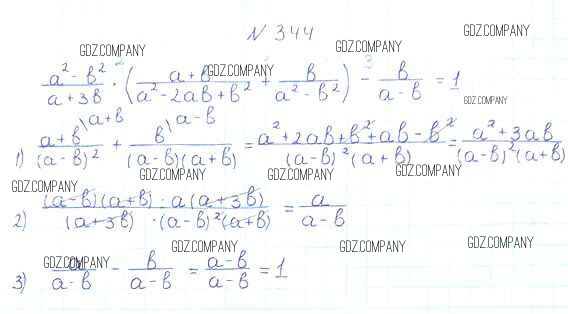 N 344
GDZ.COMPANY GDZ.COMPANY GDZ.COMPANY
2 1 3
(a² - b²)/(a + 3b) · ((a + b)/(a² - 2ab + b²) + b/(a² - b²)) - b/(a - b) = 1
GDZ.COMPANY GDZ.COMPANY
1) (a + b)\a+b/(a - b)² + b\a-b/((a - b)(a + b)) = (a² + 2ab + b² + ab - b²)/((a - b)²(a + b)) = (a² + 3ab)/((a - b)²(a + b))
GDZ.COMPANY GDZ.COMPANY GDZ.COMPANY GDZ.COMPANY
2) ((a - b)(a + b) · a(a + 3b))/((a + 3b) · (a - b)²(a + b)) = a/(a - b)
GDZ.COMPANY GDZ.COMPANY GDZ.COMPANY
GDZ.COMPANY
3) a/(a - b) - b/(a - b) = (a - b)/(a - b) = 1